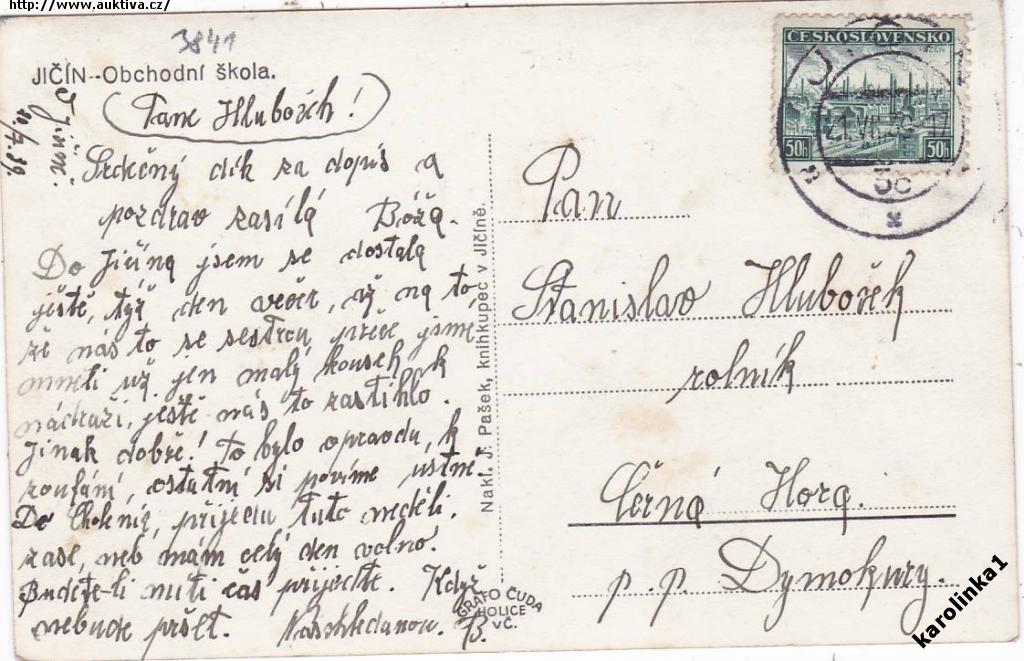 http://www.auktiva.cz/
3841
JIČÍN--Obchodní škola.
V Jičíně
20/7.39.
Pane Hlubočeh!
Srdečný dík za dopis a
pozdrav zasílá Božq.
Do Jičína jsem se dostala
ještě, týž den večer, až na to,
že nás to se sestrou, přece jsme
mněli už jen malý kousek k
nádraží, ještě nás to zastihlo.
Jinak dobře! To bylo opravdu, k
zoufání, ostatní si povíme ústně.
Do Cholenic, přijedu tuto neděli.
zase, neb mám celý den volno.
Budete-li míti čas přijedte. Když
nebude pršet. Naschledanou. B.
Nakl. J. Pašek, knihkupec v Jičíně.
GRAFO ČUDA
HOLICE
V Č.
ČESKOSLOVENSKO
PLZEŇ
50h 50h
21.VII.39-17
Pan
Stanislav Hluboček
rolník
Černá Hora.
p. p. Dymokury.
karolinka1